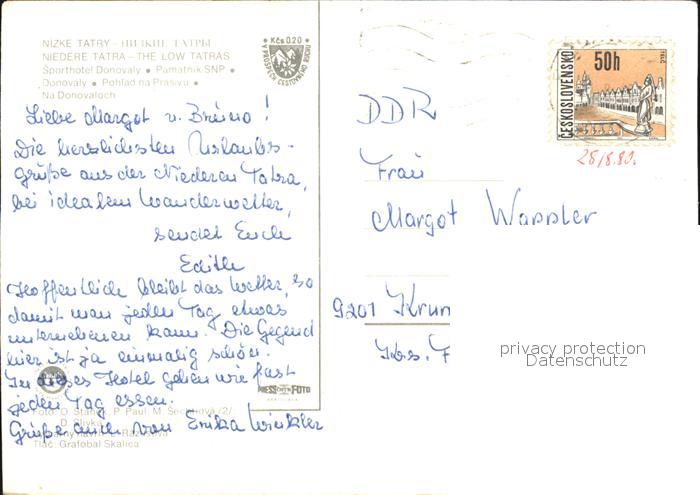 NÍZKE TATRY - НИЗКИЕ ТАТРЫ
NIEDERE TATRA - THE LOW TATRAS
Športhotel Donovaly • Pamätník SNP •
Donovaly • Pohľad na Prašivú •
Na Donovaloch
Kčs 0.20
Liebe Margot u. Bruno!
Die herzlichsten Urlaubs-
grüße aus der Niederen Tatra,
bei idealem Wanderwetter,
sendet Euch
Edith
Hoffentlich bleibt das Wetter, so
damit man jeden Tag etwas
unternehmen kann. Die Gegend
hier ist ja einmalig schön.
In dieses Hotel gehen wir fast
jeden Tag essen.
Grüße auch von Erika Winkler
PRESSFOTO
BRATISLAVA
Foto: O. P. Paul, M. /2/
D. Slivka
Tlač: Grafobal Skalica
ČESKOSLOVENSKO
50h
TELČ
28/8.80.
DDR
Frau
Margot Wappler
9201 Krum
Kbs. F
privacy protection
Datenschutz